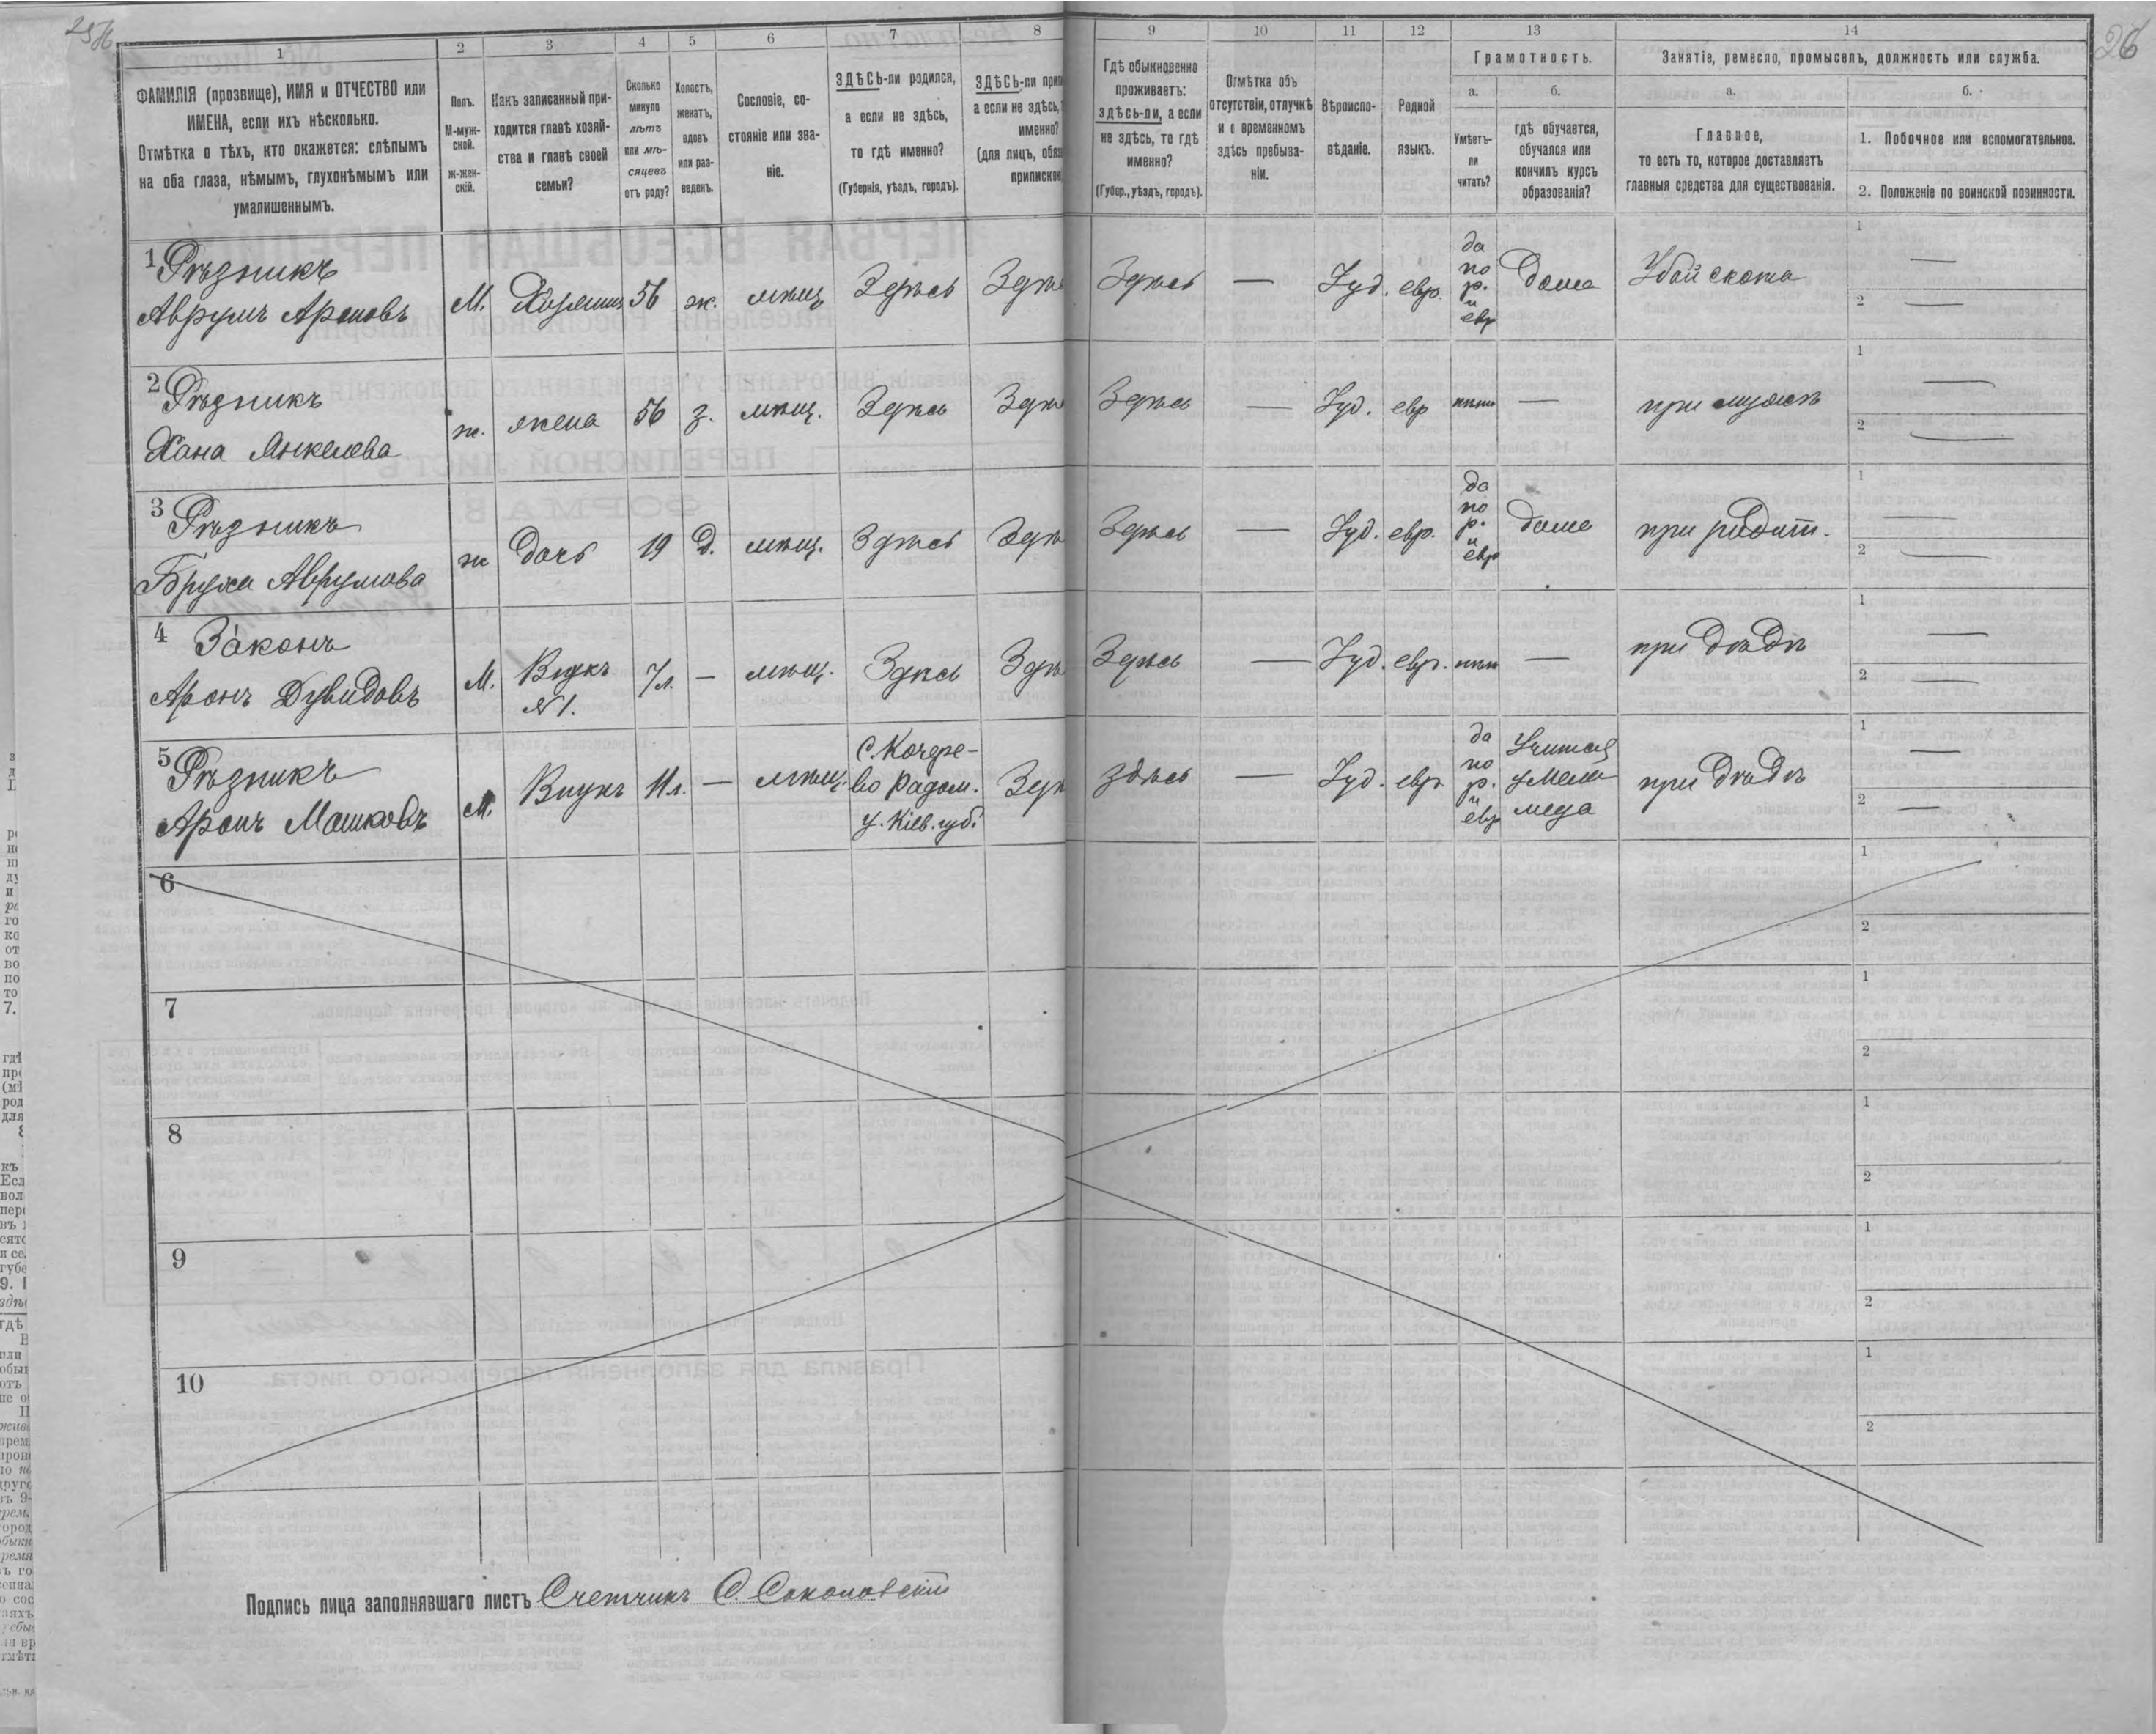 25об
26
1
2
3
4
5
6
7
8
9
10
11
12
13
14
ФАМИЛІЯ (прозвище), ИМЯ и ОТЧЕСТВО или
ИМЕНА, если ихъ нѣсколько.
Отмѣтка о тѣхъ, кто окажется: слѣпымъ
на оба глаза, нѣмымъ, глухонѣмымъ или
умалишеннымъ.
Полъ.
М-муж-
ской.
ж-жен-
скій.
Какъ записанный при-
ходится главѣ хозяй-
ства и главѣ своей
семьи?
Сколько
минуло
лѣтъ
или мѣ-
сяцевъ
отъ роду?
Холостъ,
женатъ,
вдовъ
или раз-
веденъ.
Сословіе, со-
стояніе или зва-
ніе.
ЗДѢСЬ-ли родился,
а если не здѣсь,
то гдѣ именно?
(Губернія, уѣздъ, городъ).
ЗДѢСЬ-ли
а если не здѣсь,
именно?
(для лицъ,
Гдѣ обыкновенно
проживаетъ:
здѣсь-ли, а если
не здѣсь, то гдѣ
именно?
(Губер., уѣздъ, городъ).
Отмѣтка объ
отсутствіи, отлучкѣ
и о временномъ
здѣсь пребыва-
ніи.
Вѣроиспо-
вѣданіе.
Родной
языкъ.
Грамотность.
а.
Умѣетъ-
ли
читать?
б.
гдѣ обучается,
обучался или
кончилъ курсъ
образованія?
Занятіе, ремесло, промыселъ, должность или служба.
а.
Главное,
то есть то, которое доставляетъ
главныя средства для существованія.
б.
1. Побочное или вспомогательное.
2. Положеніе по воинской повинности.
1 Рѣзникъ
Аврумъ Ароновъ
М. Хозяинъ 56 ж. мѣщ. Здѣсь Здѣ Здѣсь — Іуд. евр.
да
по
р.
и
евр
дома Убой скота
1 —
2 —
2 Рѣзникъ
Хана Янкелева
ж. жена 56 з. мѣщ. Здѣсь Здѣ Здѣсь — Іуд. евр нѣтъ — при мужѣ
1 —
2 —
3 Рѣзникъ
Бруха Аврумова
ж дочь 19 д. мѣщ. Здѣсь Здѣ Здѣсь — Іуд. евр.
да
по
р.
и
евр
дома при родит.
1 —
2 —
4 Законъ
Аронъ Дувидовъ
М. Внукъ
№ 1.
7 л. — мѣщ. Здѣсь Здѣ Здѣсь — Іуд. евр. нѣтъ — при дѣдѣ
1 —
2 —
5 Рѣзникъ
Аронъ Машковъ
М. Внукъ 11 л. — мѣщ.
С. Кочере-
во Радом.
у. Кіев. губ.
Здѣ здѣсь — Іуд. евр
да
по
р.
и
евр
Учится
у Мела
меда
при дѣдѣ
1 —
2 —
6
1
2
7
1
2
8
1
2
9
1
2
10
1
2
Подпись лица заполнявшаго листъ Счетчикъ С. Соколовскій